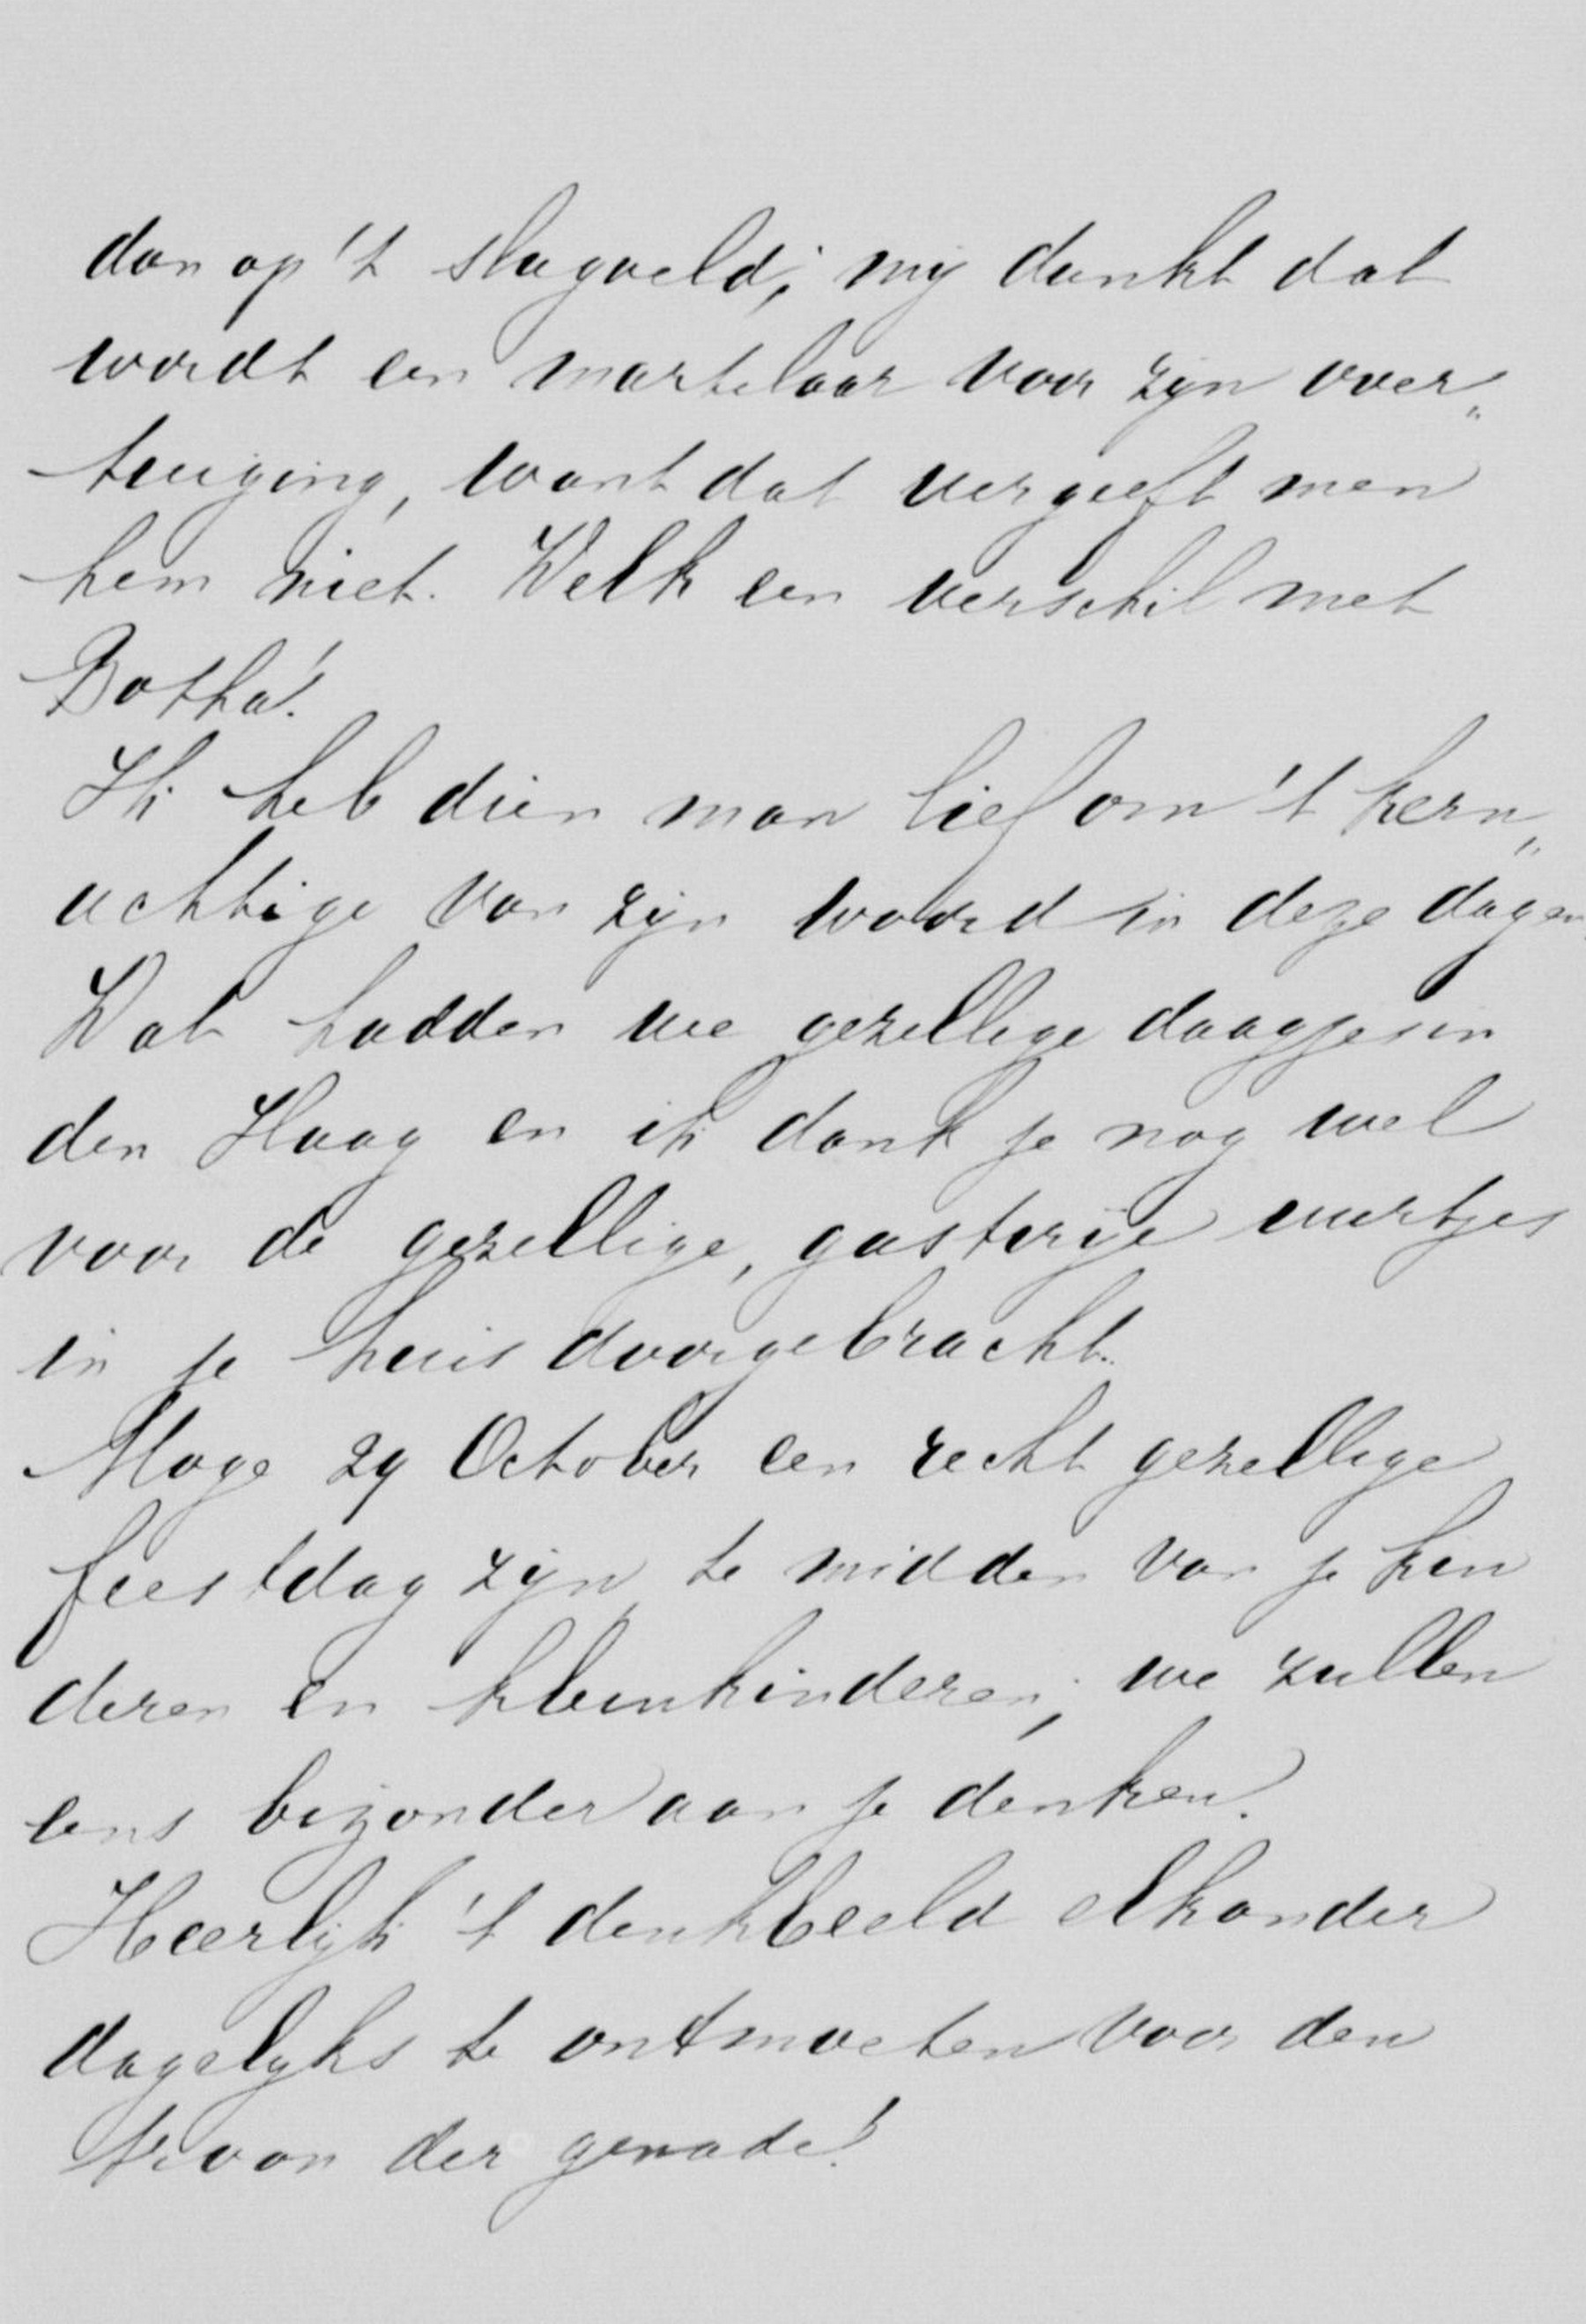 dan op 't slagveld; mij dunkt dat
wordt een martelaar voor zijn over„
tuiging, want dat vergeeft men
hem niet. Welk een verschil met
Botha!
Ik heb dien man lief om 't kern„
achtige van zijn woord in deze dagen.
Wat hadden we gezellige daagjes in
den Haag en ik dank je nog wel
voor de gezellige, gastvrije uurtjes
in je huis doorgebracht.
Moge 29 October een recht gezellige
feestdag zijn te midden van je kin
deren en kleinkinderen; we zullen
eens bizonder aan je denken.
Heerlijk 't denkbeeld elkander
dagelijks te ontmoeten voor den
troon der genade!